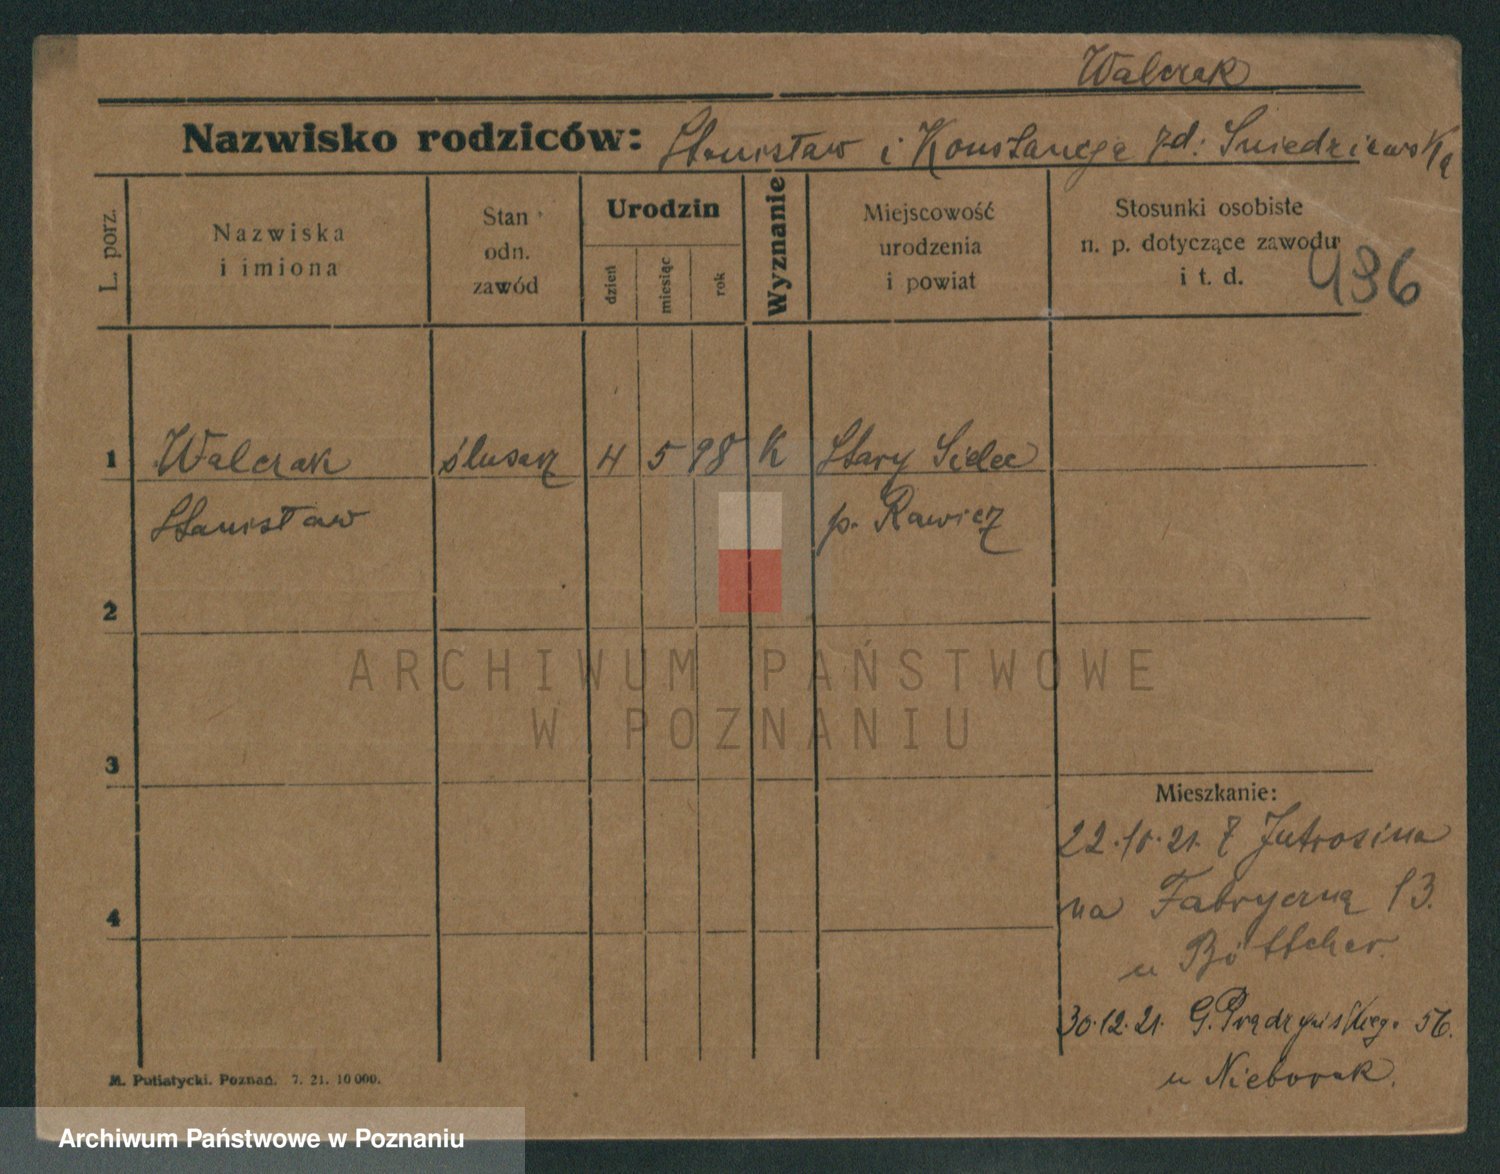 Walczak
Nazwisko rodziców: Stanisław i Konstancja zd: Sniedziewska
L. porz.
Nazwiska
i imiona
Stan
odn.
zawód
Urodzin
dzień
miesiąc
rok
Wyznanie
Miejscowość
urodzenia
i powiat
Stosunki osobiste
n. p. dotyczące zawodu
i t. d.
436
1 Walczak ślusarz 4 5 98 K Stary Sielec
Stanisław p. Rawicz
2
ARCHIWUM PAŃSTWOWE
W POZNANIU
3
Mieszkanie:
22.10.21. z Jutrosina
4
na Fabryczną 13.
u Böttcher.
30.12.21. G. Prądzyńskiego 56.
u Nieborak.
M. Putiatycki. Poznań. 7. 21. 10 000.
Archiwum Państwowe w Poznaniu